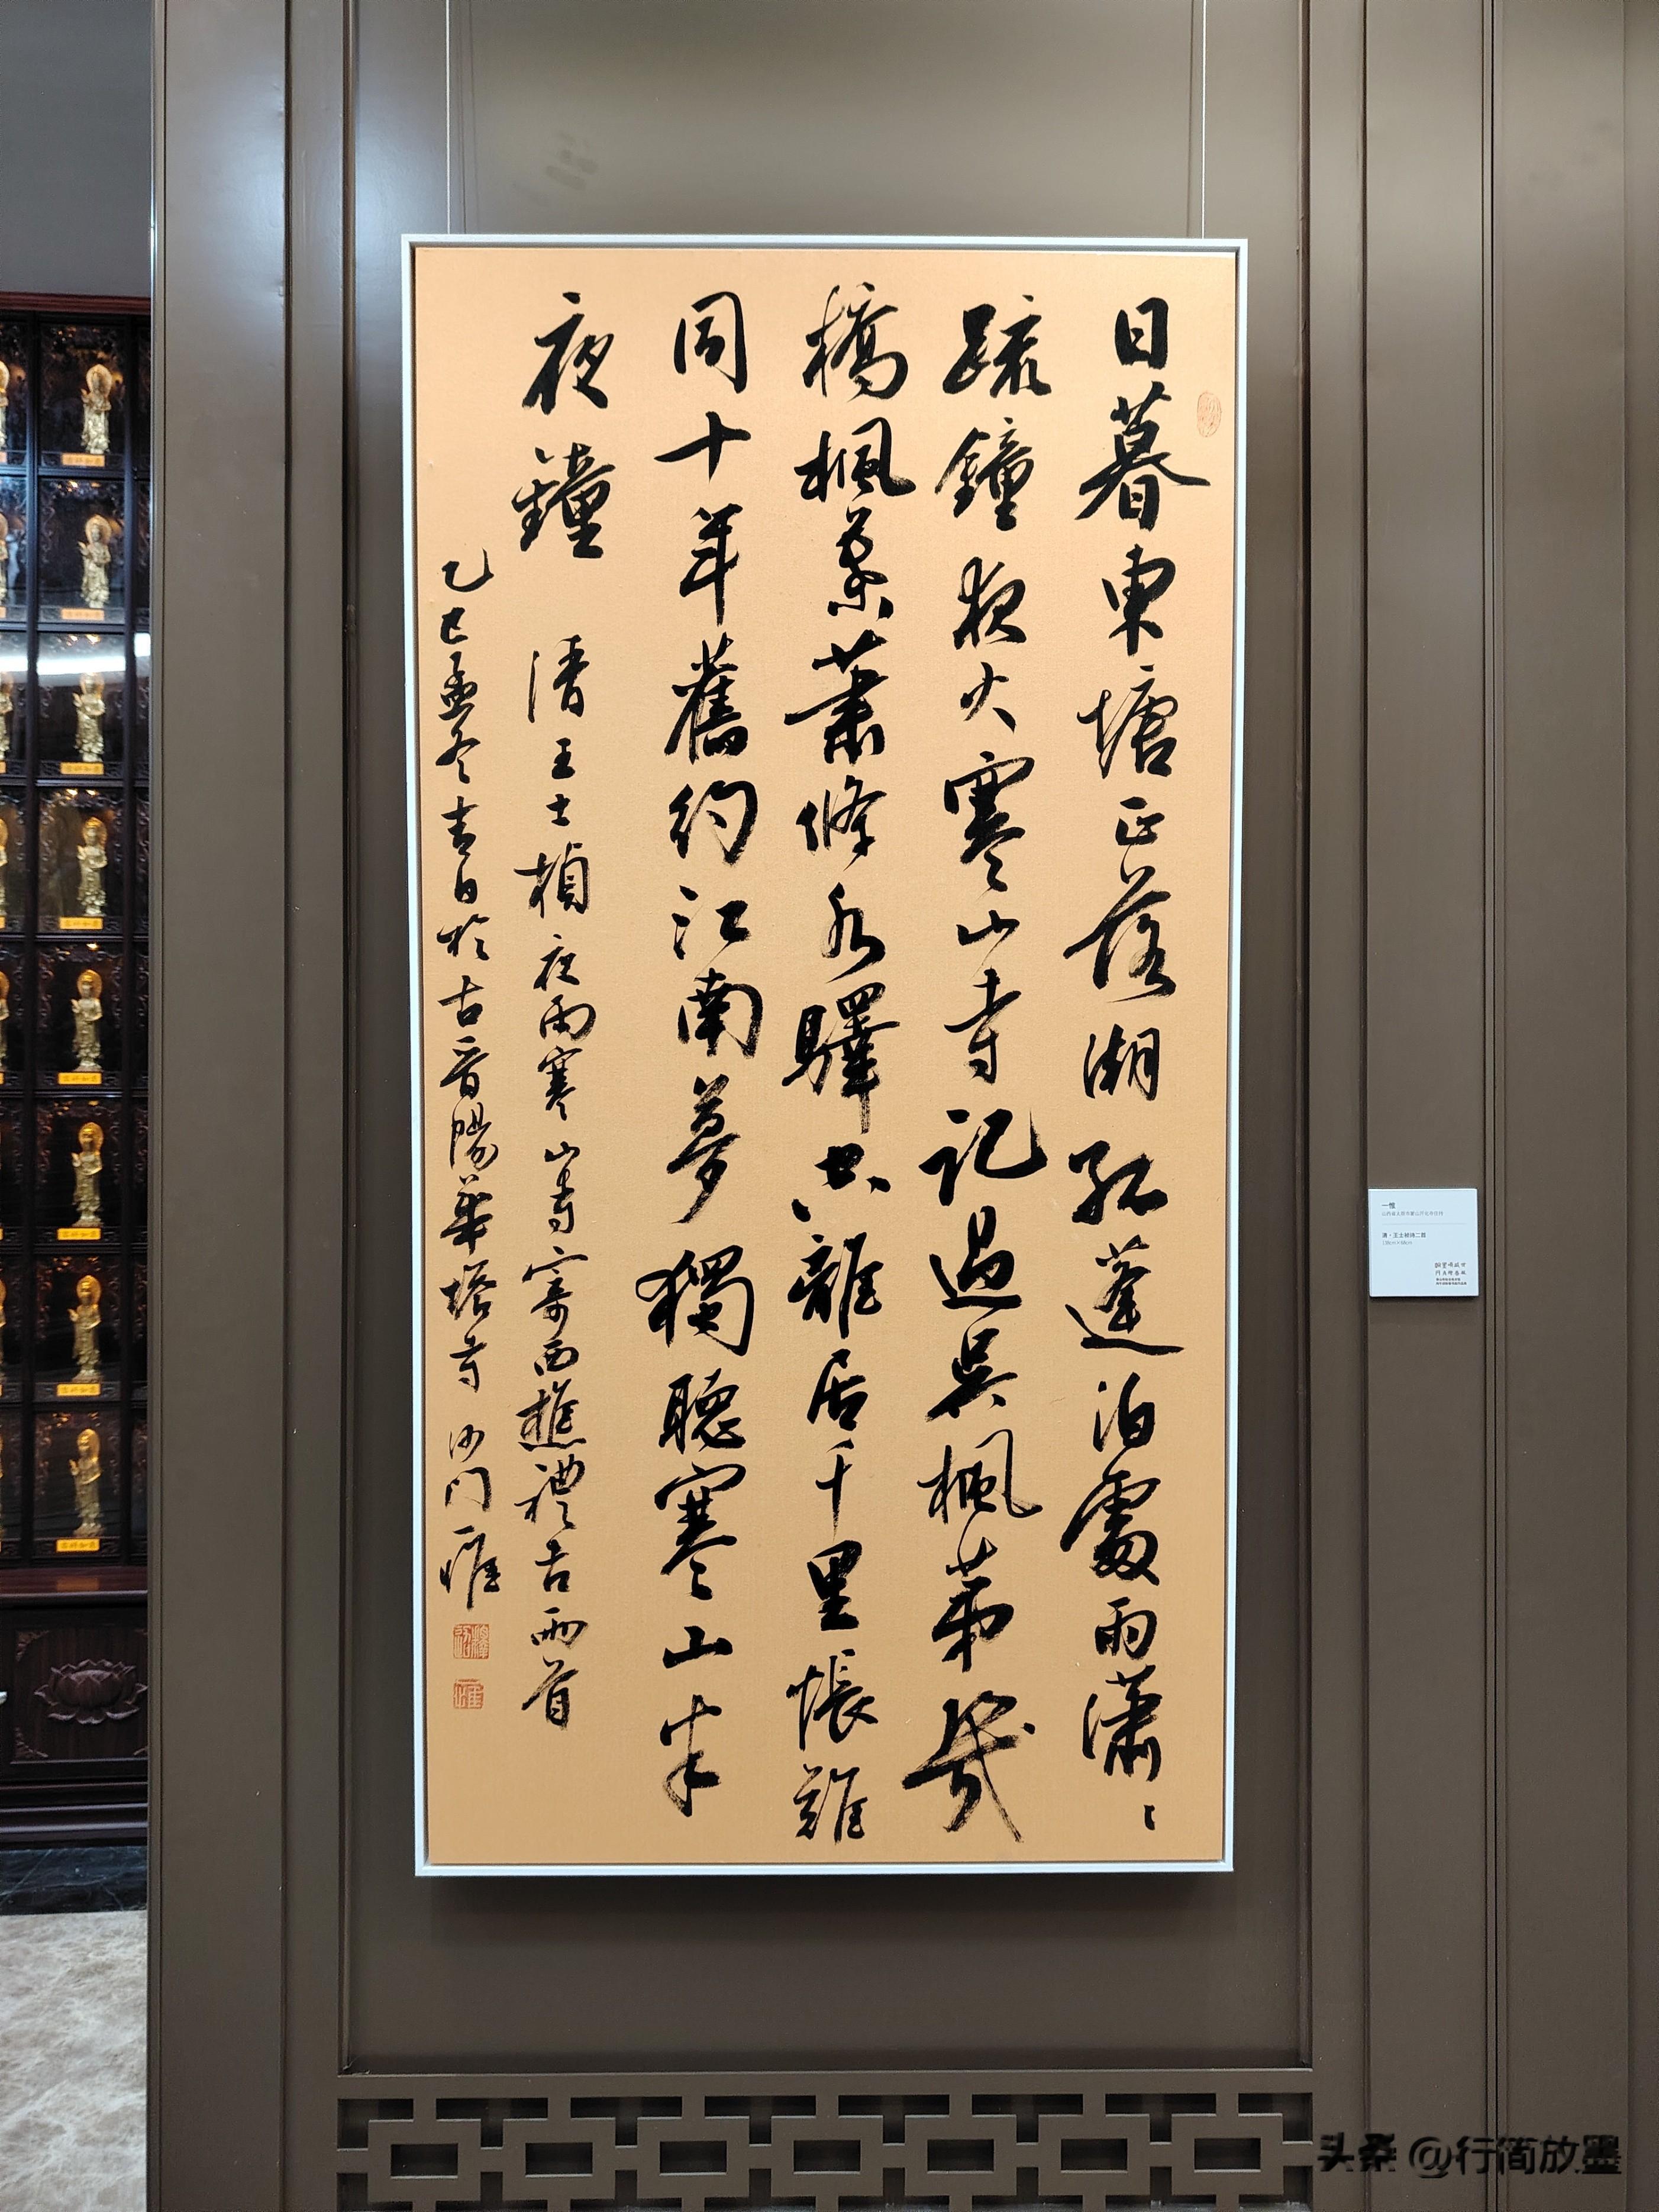 日暮東塘正落潮孤蓬泊處雨瀟〻
疏鐘夜火寒山寺記過吳楓第幾
橋楓葉蕭條水驛空離居千里悵難
同十年舊約江南夢獨聽寒山半
夜鐘
清王士楨夜雨寒山寺寄西樵禮吉兩首
乙巳孟冬吉日於古晉陽華塔寺 沙門一惟
一惟
清·王士祯诗二首
头条 @行简放墨